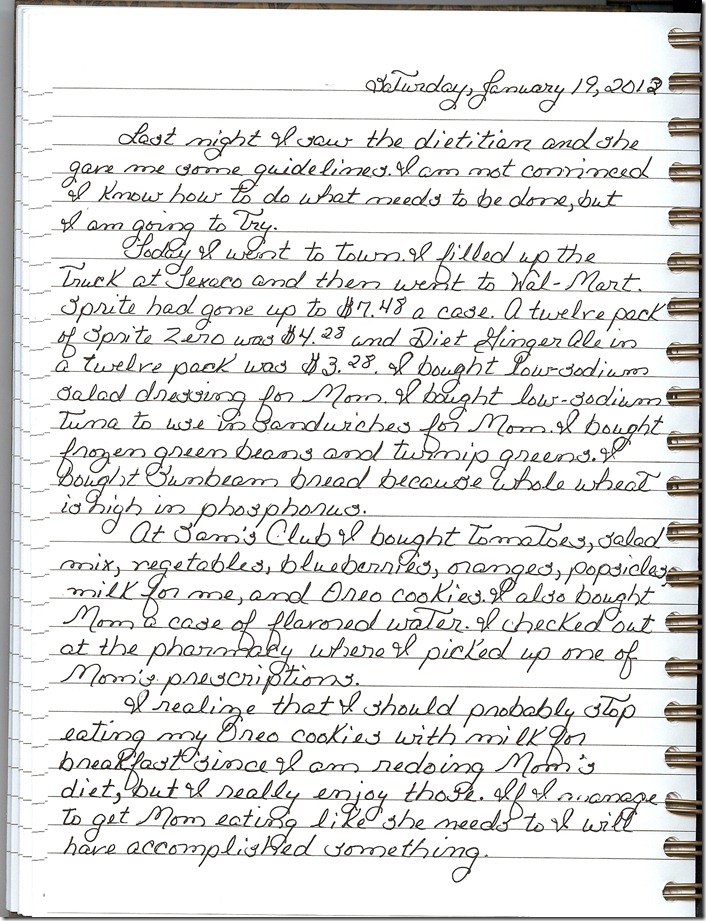 Saturday, January 19, 2013
Last night I saw the dietitian and she
gave me some guidelines. I am not convinced
I know how to do what needs to be done, but
I am going to try.
Today I went to town. I filled up the
truck at Texaco and then went to Wal-Mart.
Sprite had gone up to $7.48 a case. A twelve pack
of Sprite Zero was $4.28 and Diet Ginger Ale in
a twelve pack was $3.28. I bought low-sodium
salad dressing for Mom. I bought low-sodium
tuna to use in sandwiches for Mom. I bought
frozen green beans and turnip greens. I
bought Sunbeam bread because whole wheat
is high in phosphorus.
At Sam's Club I bought tomatoes, salad
mix, vegetables, blueberries, oranges, popsicles,
milk for me, and Oreo cookies. I also bought
Mom a case of flavored water. I checked out
at the pharmacy where I picked up one of
Mom's prescriptions.
I realize that I should probably stop
eating my Oreo cookies with milk for
breakfast since I am redoing Mom's
diet, but I really enjoy those. If I manage
to get Mom eating like she needs to I will
have accomplished something.